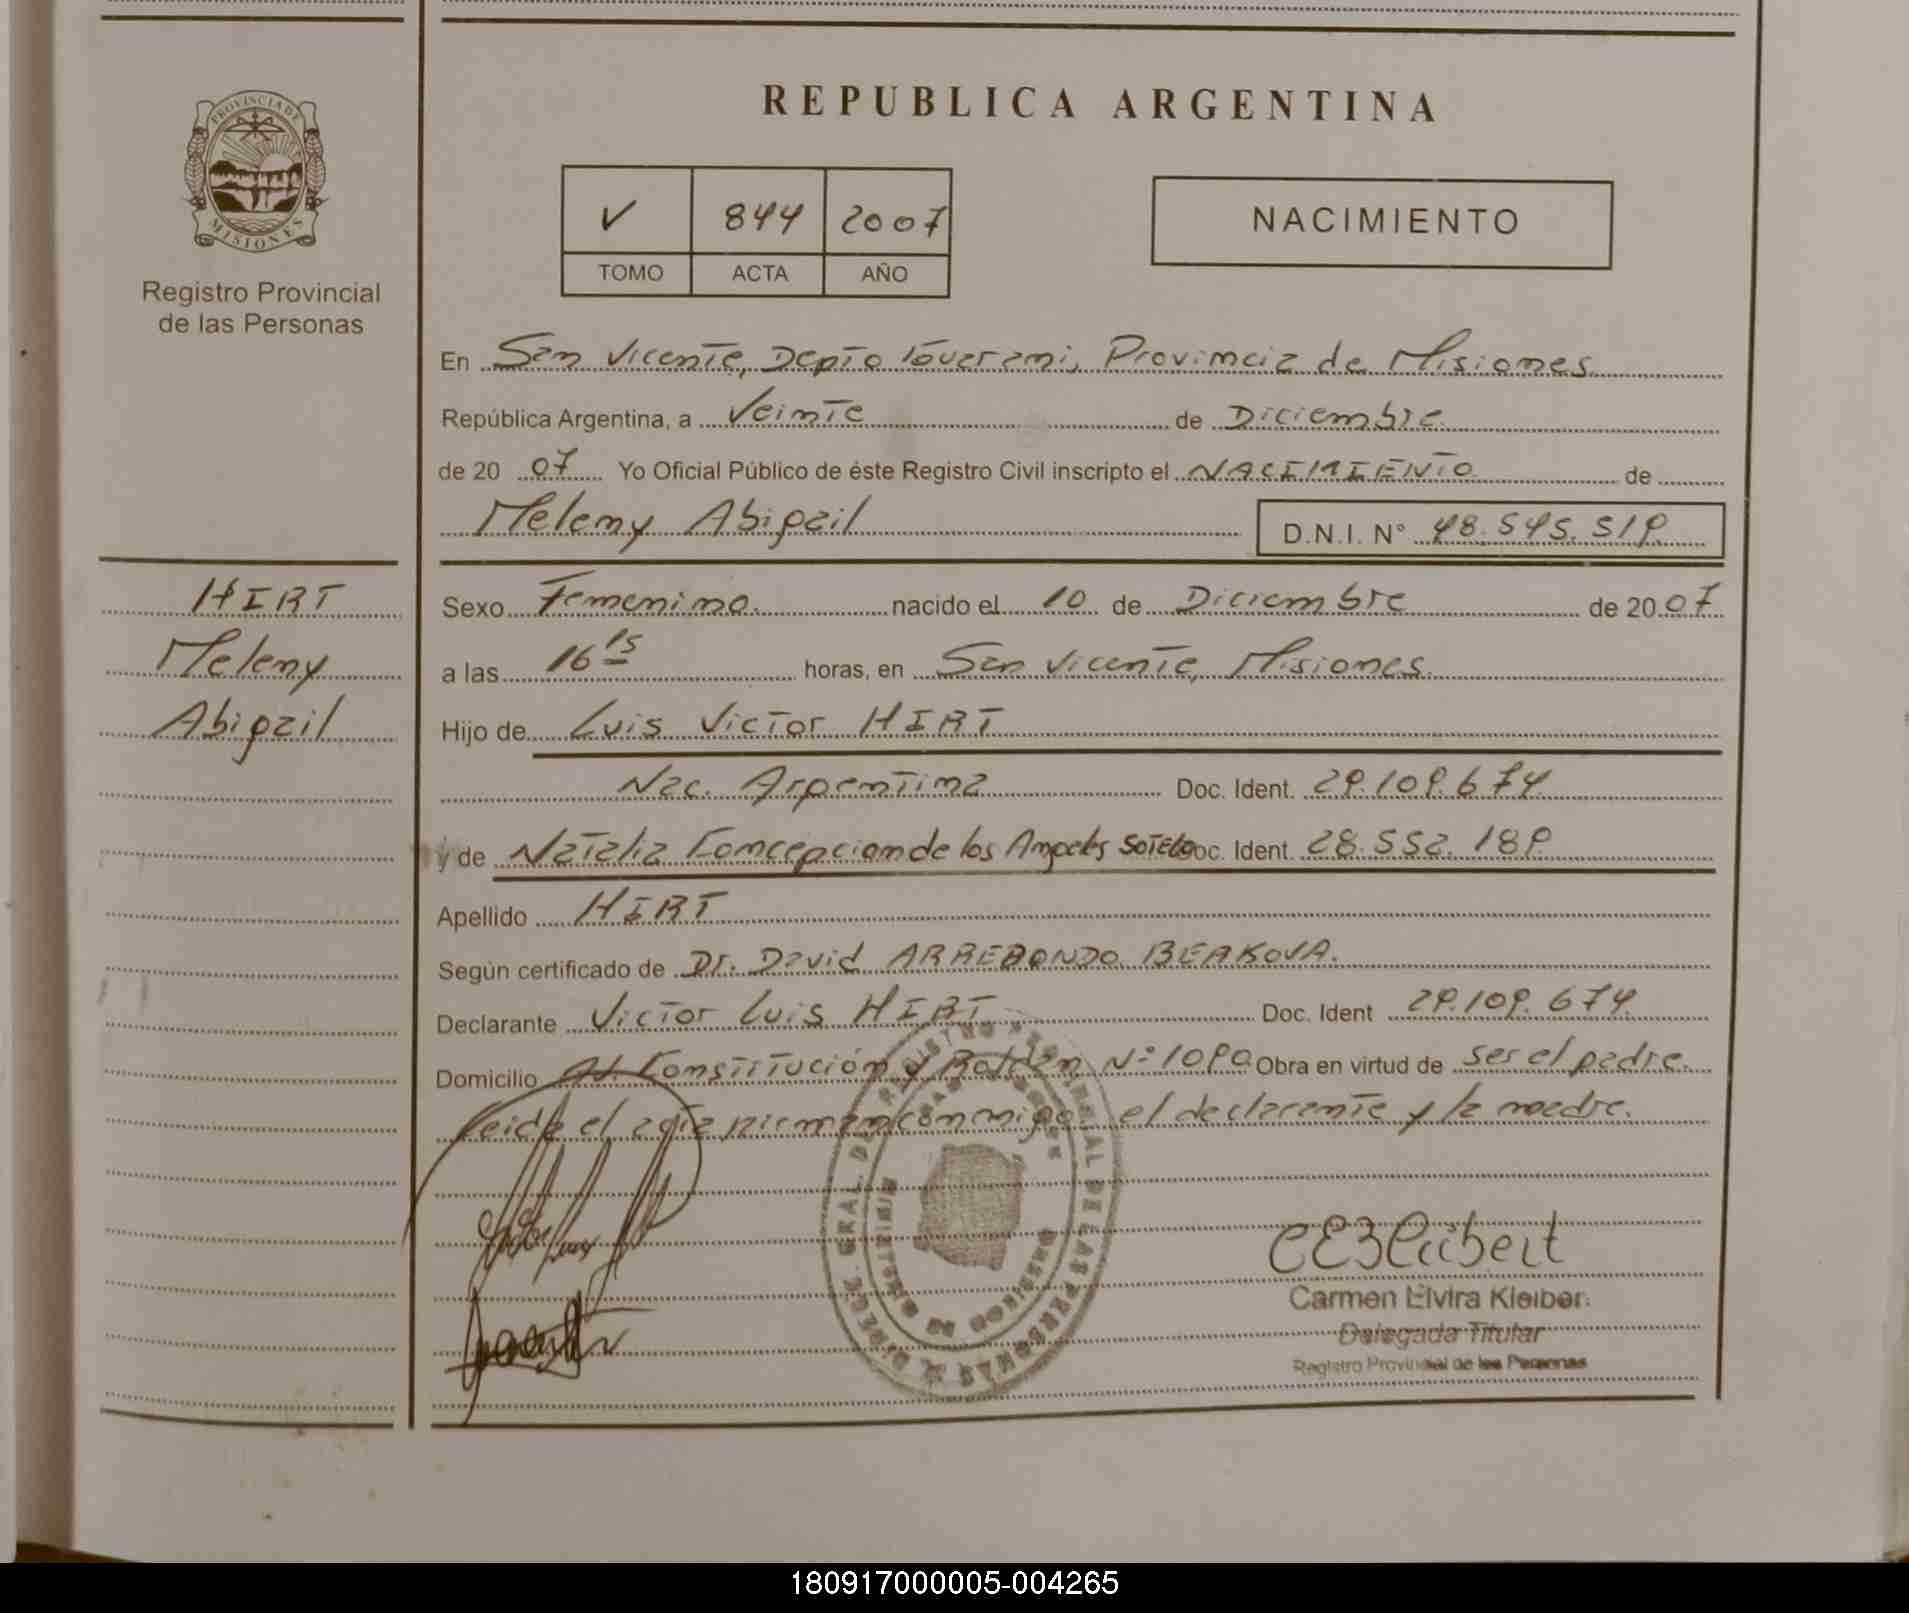 REPUBLICA ARGENTINA
PROVINCIA DE
MISIONES
Registro Provincial
de las Personas
V 844 2007
TOMO ACTA AÑO
NACIMIENTO
En San Vicente, Depto Guarani, Provincia de Misiones
República Argentina, a Veinte de Diciembre
de 20 07 Yo Oficial Público de éste Registro Civil inscripto el NACIMIENTO de
Meleny Abigail D.N.I. N° 48.545.519
HIRT
Meleny
Abigail
Sexo Femenino. nacido el 10 de Diciembre de 20 07
a las 16 15 horas, en San Vicente, Misiones.
Hijo de Luis Victor HIRT
Nac. Argentina Doc. Ident. 29.109.674
y de Natalia Concepcion de los Angeles Sotelo Doc. Ident. 28.552.189
Apellido HIRT
Según certificado de Dr. David ARREDONDO BERKOVA.
Declarante Victor Luis HIRT Doc. Ident 29.109.674
Domicilio Av. Constitución y N° 1090 Obra en virtud de ser el padre.
Leida el acta firman conmigo el declarante y la madre.
DIREC. GRAL. DEL REGISTRO PROVINCIAL DE LAS PERSONAS
Carmen Elvira Kleiber
Delegada Titular
Registro Provincial de las Personas
180917000005-004265